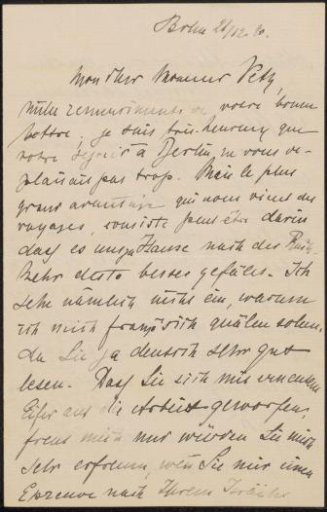 Bohn 28/12. 90.
Mon cher Monsieur Veth,
Mille remerciments de votre bonne
lettre; je suis très-heureux que
votre séjour à Berlin ne vous de-
plaisait pas trop. Mais le plus
grand avantage qui nous vient des
voyages, consiste peut être darin
dass es uns zu Hause nach der Rück-
kehr desto besser gefällt. Ich
sehe nämlich nicht ein, warum
ich mich französisch quälen sollen,
da Sie ja deutsch sehr gut
lesen. Dass Sie sich mit erneutem
Eifer auf die Arbeit geworfen,
freut mich nur würden Sie mich
sehr erfreuen, wenn Sie mir einen
Epreuve nach Ihrem Israëls